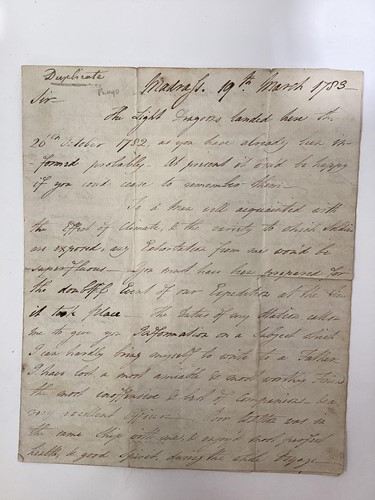 Duplicate
Madrass. 19th March 1783
Sir
The Light Dragoons landed here the
20th October 1782, as you have already been in-
formed probably. At present it wou'd be happy
if you cou'd cease to remember them
To a Man well acquainted with
the Effect of Climate, & the variety to which Soldiers
are exposed, any Exhortation from me wou'd be
superfluous. You must have been prepared for
the doubtfull Event of our Expedition at the time
it took place. The duties of my Station
me to give you Information on a Subject which
I can hardly bring myself to write to a Father.
I have lost a most amiable & most worthy Friend
the most inoffensive & best of Companions &
very excellent Officer. Your was on
the same Ship with me, & enjoy'd most perfect
health, & good Spirits during the whole Voyage